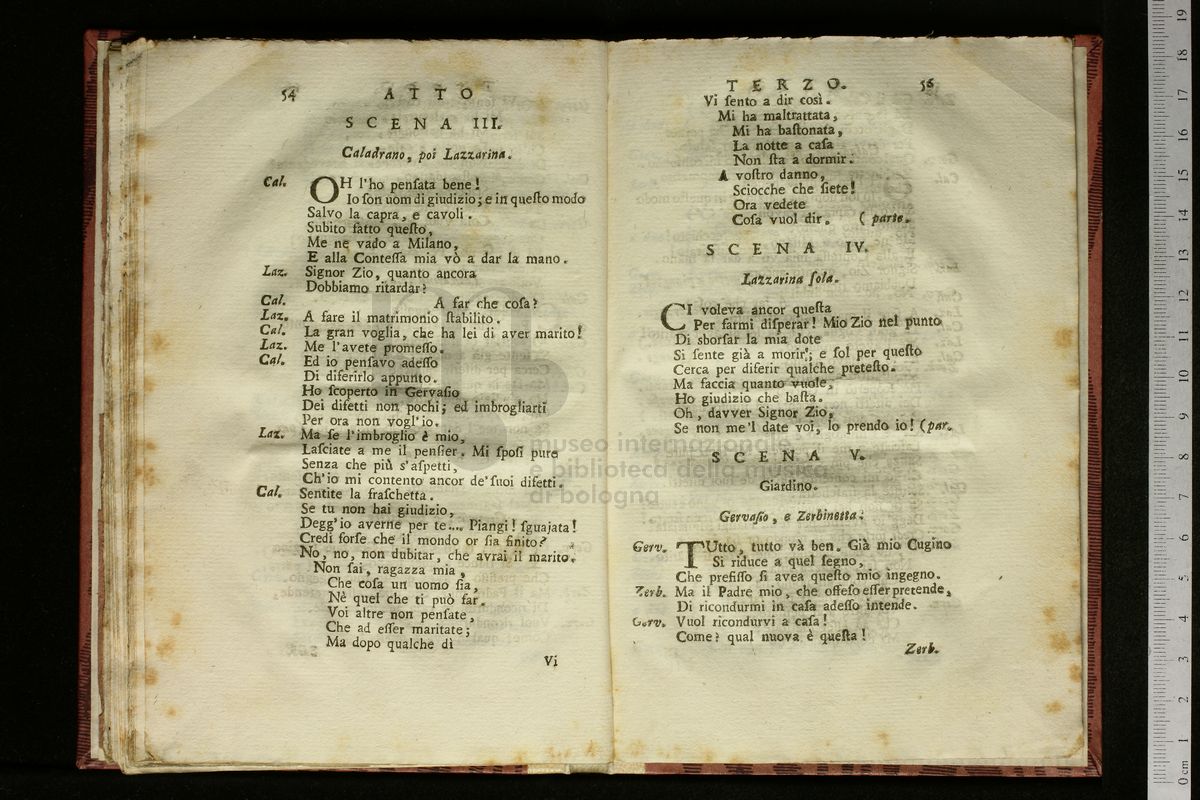 54 ATTO
SCENA III.
Caladrano, poi Lazzarina.
Cal. OH l'ho penſata bene!
Io ſon uom di giudizio; e in queſto modo
Salvo la capra, e cavoli.
Subito fatto queſto,
Me ne vado a Milano,
E alla Conteſſa mia vò a dar la mano.
Laz. Signor Zio, quanto ancora
Dobbiamo ritardar?
Cal. A far che coſa?
Laz. A fare il matrimonio ſtabilito.
Cal. La gran voglia, che ha lei di aver marito!
Laz. Me l'avete promeſſo.
Cal. Ed io penſavo adeſſo
Di diferirlo appunto.
Ho ſcoperto in Gervaſio
Dei difetti non pochi; ed imbrogliarti
Per ora non vogl'io.
Laz. Ma ſe l'imbroglio è mio,
Laſciate a me il penſier. Mi ſpoſi pure
Senza che più s'aſpetti,
Ch'io mi contento ancor de' ſuoi difetti.
Cal. Sentite la fraſchetta.
Se tu non hai giudizio,
Degg'io averne per te.... Piangi! ſguajata!
Credi forſe che il mondo or ſia finito?
No, no, non dubitar, che avrai il marito.
Non ſai, ragazza mia,
Che coſa un uomo ſia,
Nè quel che ti può far.
Voi altre non penſate,
Che ad eſſer maritate;
Ma dopo qualche dì
Vi
TERZO. 56
Vi ſento a dir così.
Mi ha maltrattata,
Mi ha baſtonata,
La notte a caſa
Non ſta a dormir.
A voſtro danno,
Sciocche che ſiete!
Ora vedete
Coſa vuol dir. (parte.
SCENA IV.
Lazzarina ſola.
CI voleva ancor queſta
Per farmi diſperar! Mio Zio nel punto
Di sborſar la mia dote
Si ſente già a morir; e ſol per queſto
Cerca per diferir qualche preteſto.
Ma faccia quanto vuole,
Ho giudizio che baſta.
Oh, davver Signor Zio,
Se non me'l date voi, lo prendo io! (par.
SCENA V.
Giardino.
Gervaſio, e Zerbinetta.
Gerv. TUtto, tutto và ben. Già mio Cugino
Si riduce a quel ſegno,
Che prefiſſo ſi avea queſto mio ingegno.
Zerb. Ma il Padre mio, che offeſo eſſer pretende,
Di ricondurmi in caſa adeſſo intende.
Gerv. Vuol ricondurvi a caſa!
Come? qual nuova è queſta!
Zerb.
museo internazionale
e biblioteca della musica
di bologna
0 cm 1 2 3 4 5 6 7 8 9 10 11 12 13 14 15 16 17 18 19